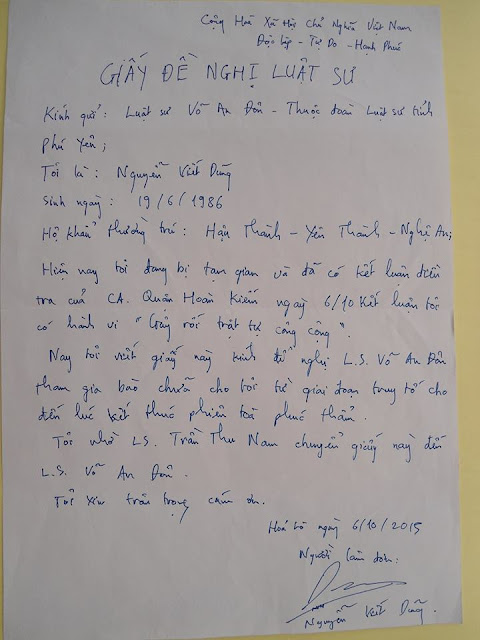 Cộng Hoà Xã Hội Chủ Nghĩa Việt Nam
Độc lập - Tự Do - Hạnh Phúc
GIẤY ĐỀ NGHỊ LUẬT SƯ
Kính gửi : Luật sư Võ An Đôn - Thuộc đoàn Luật sư tỉnh
Phú Yên ;
Tôi là : Nguyễn Viết Dũng
Sinh ngày : 19/6/1986
Hộ khẩu thường trú : Hậu Thành - Yên Thành - Nghệ An;
Hiện nay tôi đang bị tạm giam và đã có kết luận điều
tra của CA. Quận Hoàn Kiếm ngày 6/10 Kết luận tôi
có hành vi " Gây rối trật tự công cộng ".
Nay tôi viết giấy này kính đề nghị L.S. Võ An Đôn
tham gia bào chữa cho tôi từ giai đoạn truy tố cho
đến lúc kết thúc phiên toà phúc thẩm .
Tôi nhờ LS. Trần Thu Nam chuyển giấy này đến
L.S. Võ An Đôn .
Tôi xin trân trọng cám ơn.
Hoả Lò ngày 6/10/2015
Người làm đơn:
Nguyễn Viết Dũng .